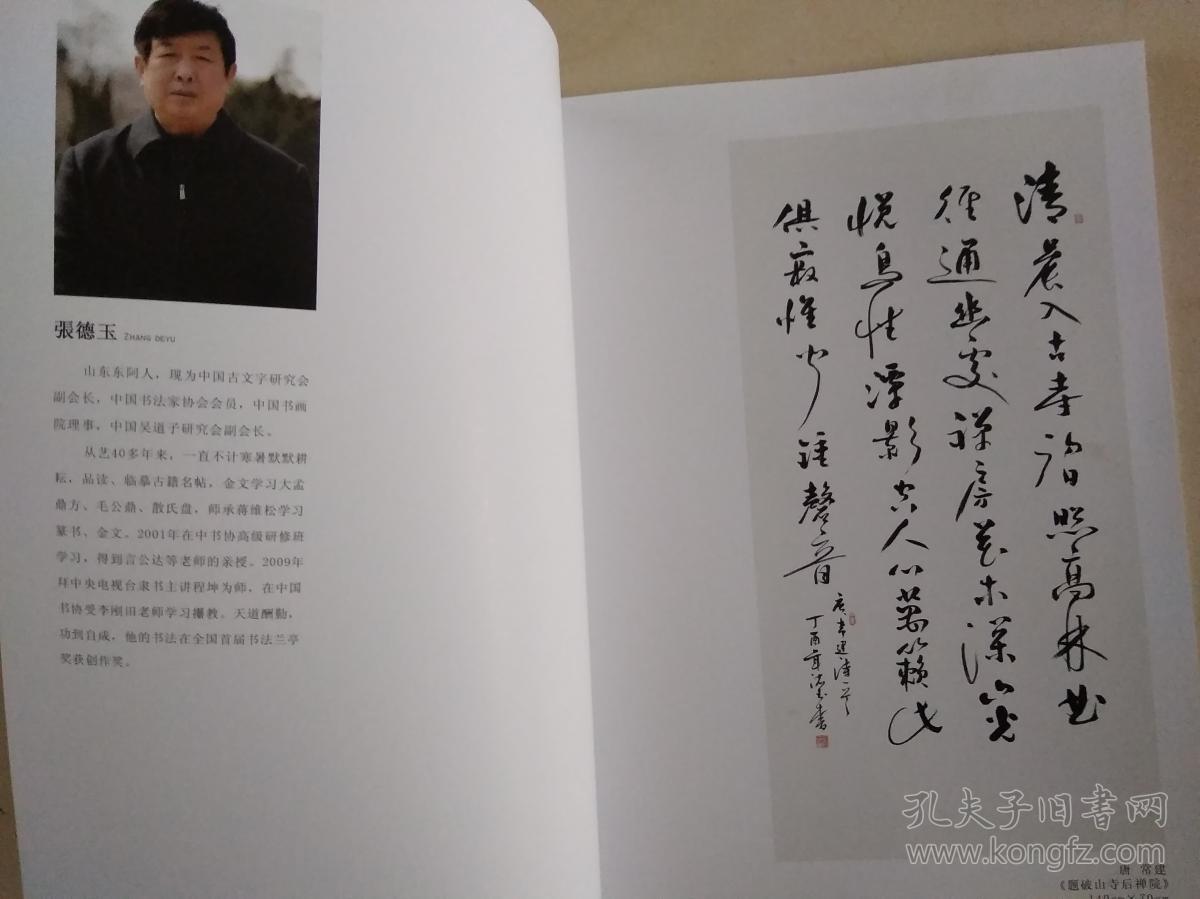 張德玉 ZHANG DEYU
山东东阿人，现为中国古文字研究会
副会长，中国书法家协会会员，中国书画
院理事，中国吴道子研究会副会长。
从艺40多年来，一直不计寒暑默默耕
耘，品读、临摹古籍名帖，金文学习大孟
鼎方、毛公鼎、散氏盘，师承蒋维松学习
篆书、金文。2001年在中书协高级研修班
学习，得到言公达等老师的亲授。2009年
拜中央电视台隶书主讲程坤为师，在中国
书协受李刚田老师学习播教。天道酬勤，
功到自成，他的书法在全国首届书法兰亭
奖获创作奖。
清晨入古寺初日照高林曲
径通幽处禅房花木深山光
悦鸟性潭影空人心万籁此
俱寂惟闻钟磬音
唐常建诗一首
丁酉年德玉书
唐 常建
《题破山寺后禅院》
孔夫子旧書网
www.kongfz.com